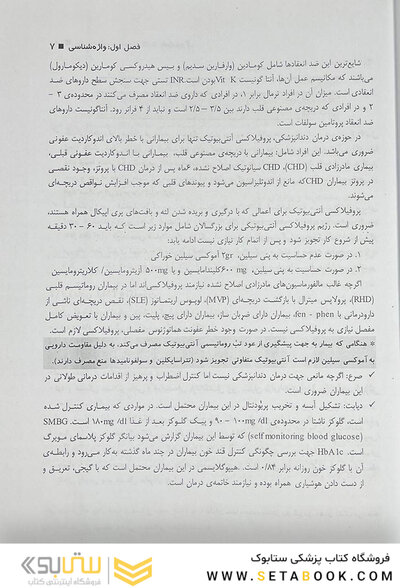 فصل اول: واژه‌شناسی ■ ۷
شایع‌ترین این ضد انعقادها شامل کومادین (وارفارین سدیم) و بیس هیدروکسی کومارین (دیکومارول)
می‌باشند که مکانیسم عمل آن‌ها، آنتا گونیست Vit K بودن است.INR تستی جهت سنجش سطح داروهای ضد
انعقادی است. میزان آن در افراد نرمال برابر ۱، در افرادی که داروی ضد انعقاد مصرف می‌کنند در محدوده‌ی ۳ –
۲ و در افرادی که دریچه‌ی مصنوعی قلب دارند بین ۳/۵ – ۲/۵ است و نباید از ۴ فراتر رود. آنتاگونیست داروهای
ضد انعقاد پروتامین سولفات است.
در حوزه‌ی درمان دندانپزشکی، پروفیلاکسی آنتی‌بیوتیک تنها برای بیماران با خطر بالای اندوکاردیت عفونی
ضروری می‌باشد. این افراد شامل: بیمارانی با دریچه‌ی مصنوعی قلب، بیمارانی با اندوکاردیت عفونی قبلی،
بیماری مادرزادی قلب (CHD)، CHD سیانوتیک اصلاح نشده، ۶ماه پس از درمان CHD با پروتز، وجود نقصی
در پروتز بیماران CHDکه مانع از اندوتلیزاسیون می‌شود و پیوندهای قلبی که موجب افزایش نواقص دریچه‌ای
می‌شوند.
پروفیلاکسی آنتی‌بیوتیک برای اعمالی که با درگیری و بریده شدن لثه و بافت‌های پری اپیکال همراه هستند،
ضروری است. رژیم پروفیلاکسی آنتی‌بیوتیکی برای بزرگسالان شامل موارد زیر است کـه بایـد ۶۰ – ۳۰ دقیقـه
پیش از شروع کار تجویز شود و پس از اتمام کار نیازی نیست ادامه یابد:
۱. در صورت عدم حساسیت به پنی سیلین، ۲gr آموکسی سیلین خوراکی
۲. در صورت حساسیت به پنی سیلین، ۶۰۰mg کلیندامایسین و یا ۵۰۰mg آزیترومایسین/ کلاریترومایسین
اگرچه غالب مالفورماسیون‌های مادرزادی اصلاح نشده نیازمند پروفیلاکسی‌اند اما در بیماران روماتیسم قلبی
(RHD)، پرولاپس میترال با بازگشت دریچه‌ای (MVP)، لوپوس اریتماتوز (SLE)، نقـص دریچـه‌ای ناشی از
دارودرمانی با fen - phen، بیماران دارای ضربان ساز، بیماران دارای پیچ، پلیت، پین و بیماران با تعـویض کامـل
مفصل نیازی به پروفیلاکسی نیست. در صورت وجود خطر عفونت هماتوژنوس مفصلی، پروفیلاکسی لازم است.
* هنگامی که بیمار به جهت پیشگیری از عود تب روماتیسمی آنتی‌بیوتیک مصرف می‌کند، به دلیل مقاومت دارویی
به آموکسی سیلین لازم است آنتی‌بیوتیک متفاوتی تجویز شود (تتراسایکلین و سولفونامیدها منع مصرف دارند).
✓ صرع: اگرچه مانعی جهت درمان دندانپزشکی نیست اما کنترل اضطراب و پرهیز از اقدامات درمانی طولانی در
این بیماران ضروری است.
✓ دیابت: تشکیل آبسه و تخریب پریودنتال در این بیماران محتمل است. در مواردی که بیماری کنترل شده
است، گلوکز ناشتا در محدوده‌ی ۹۰ – ۱۰۰mg /dl و پیـک گلـوکز بعـد از غذا ۱۸۰mg /dl اسـت. SMBG
(self monitoring blood glucose) که توسط این بیماران گزارش می‌شود بیانگر گلوکز پلاسمای مویرگ
است. HbA1c جهت بررسی چگونگی کنترل قند خون بیماران در چند ماه گذشته به‌کار می‌رود و رابطه‌ی
آن با گلوکز خون روزانه برابر ۰/۸۴ است. هیپوگلایسمی در این بیماران محتمل است که با گیجی، تعریق و
از دست دادن هوشیاری همراه بوده و نیازمند خاتمه‌ی درمان است.
فروشگاه کتاب پزشکی ستابوک
WWW.SETABOOK.COM
ستابوک
فروشگاه اینترنتی کتاب